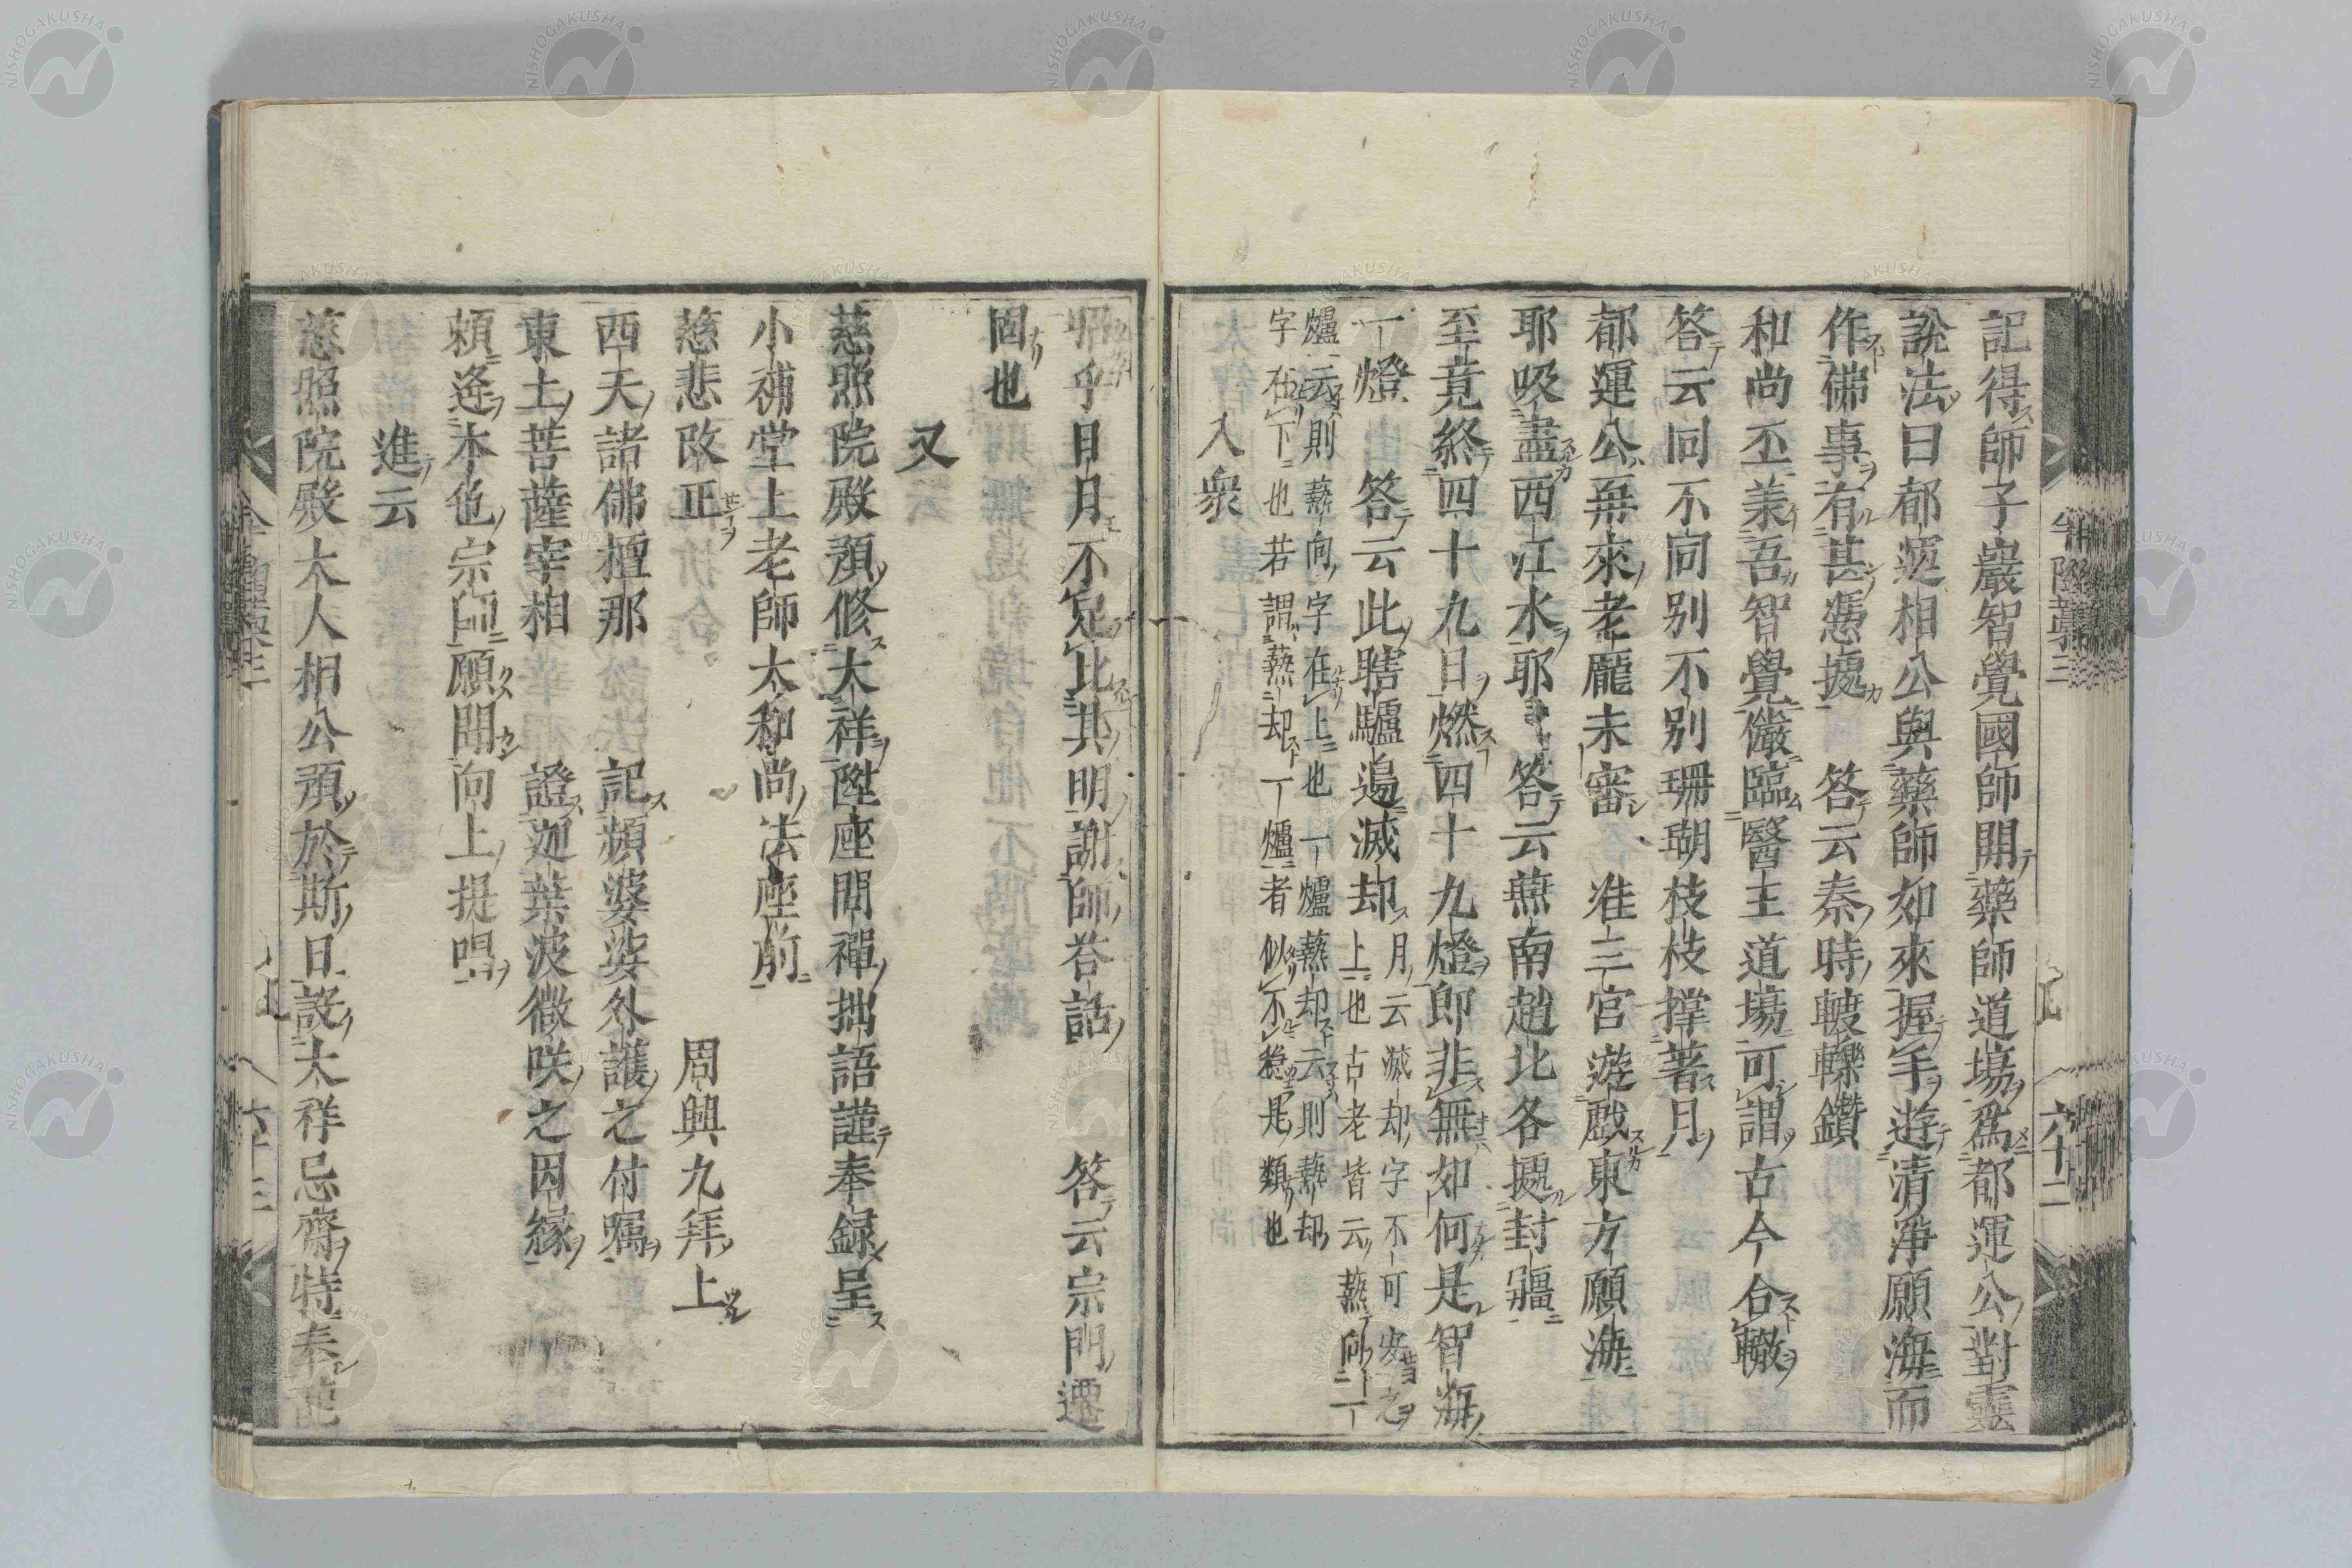 記得師子巖智覺國師開藥師道場爲都運公對靈
說法曰都運相公與藥師如來握手遊淸淨願海而
作佛事有甚憑據　答云秦時𨍏轢鑽
和尚丕業吾智覺儼臨醫王道場可謂古今合轍
答云同不同別不別珊瑚枝枝撑著月
都運公再來老龐未審　准三宮遊戲東方願海
耶吸盡西江水耶　答云燕南趙北各據封疆
至竟終四十九日燃四十九燈郎非無如何是智海
一燈　答云此瞎驢邊滅却
月云滅却字不可安之
上也古老皆云爇向一
爐云則爇向字在上也一爐爇却云則爇却
字在下也若謂爇却一爐者似不穩是類也
入衆
六十二
明乎日月不足比其明謝師答話　答云宗門遷
固也
又
慈照院殿預修大祥陞座問禪拙語謹奉録呈
小補堂上老師太和尚法座前
慈悲改正　周興九拜上
西天諸佛檀那　記頻婆娑外護之付囑
東土菩薩宰相　證迦葉波微咲之因緣
頼逢本色宗師願聞向上提唱
進云
慈照院殿大人相公預於斯日設大祥忌齋特奉